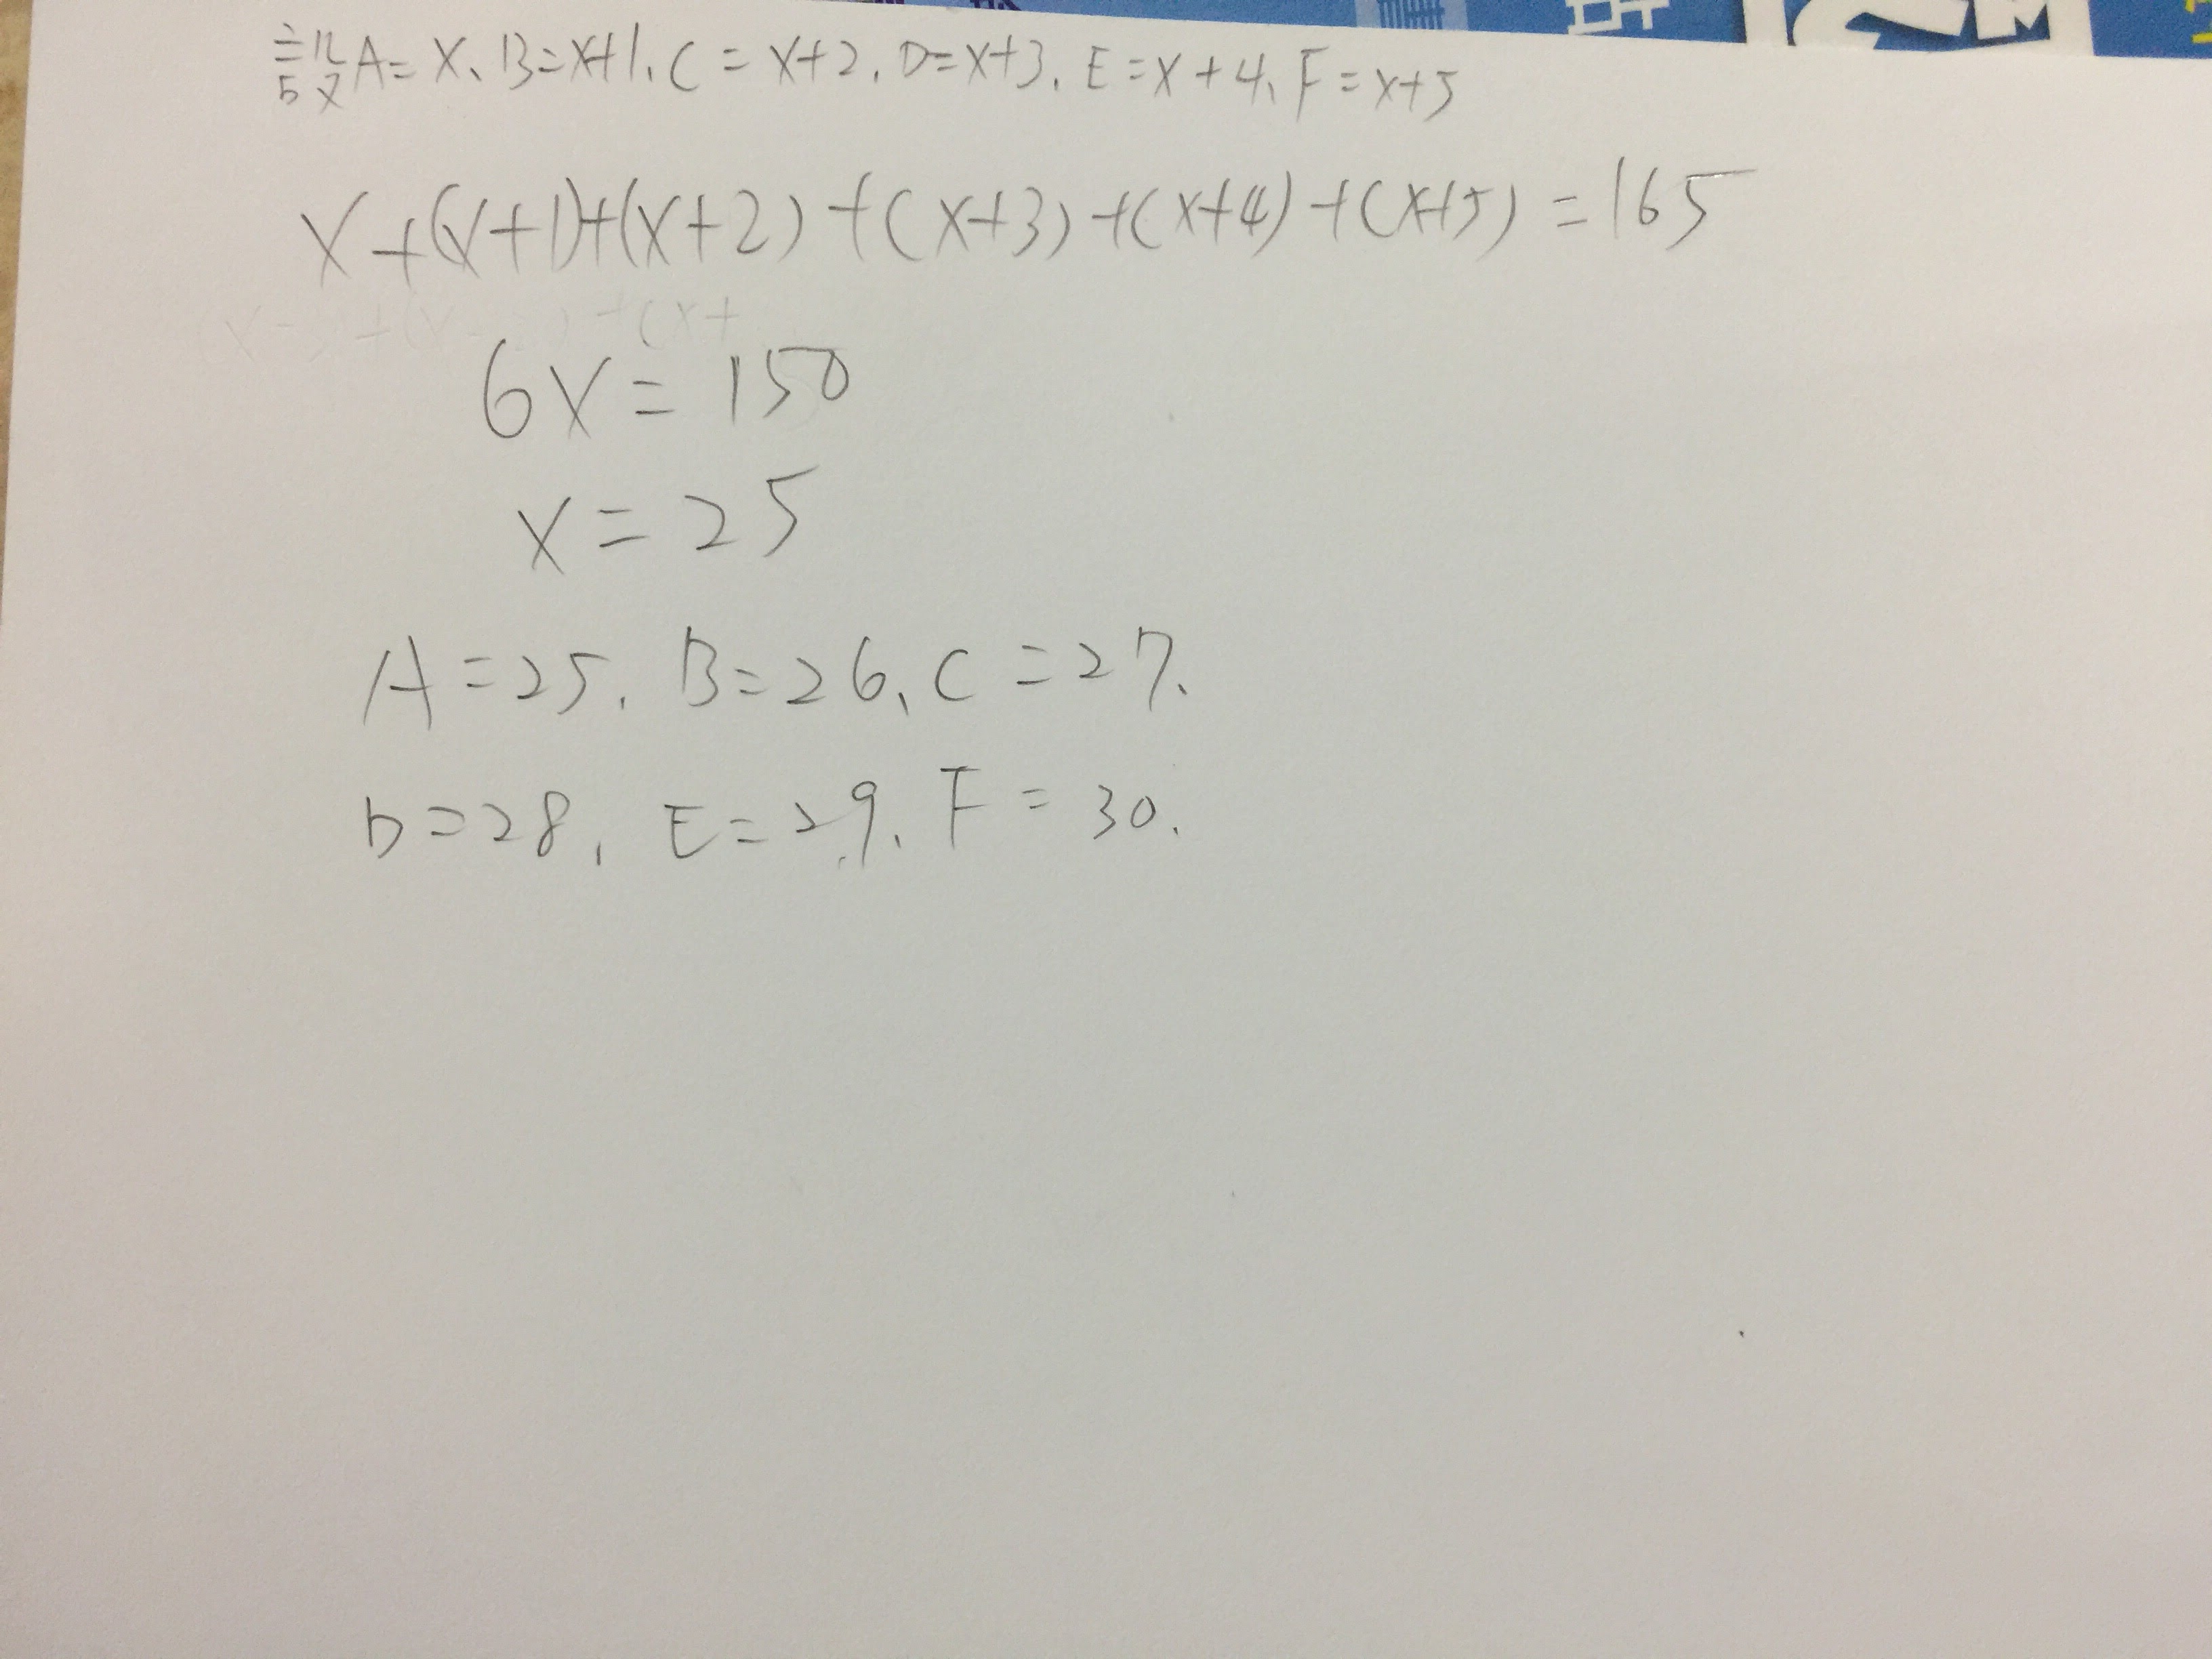 設A=x、B=x+1、C=x+2、D=x+3、E=x+4、F=x+5
x+(x+1)+(x+2)+(x+3)+(x+4)+(x+5)=165
6x=150
x=25
A=25、B=26、C=27、
D=28、E=29、F=30.